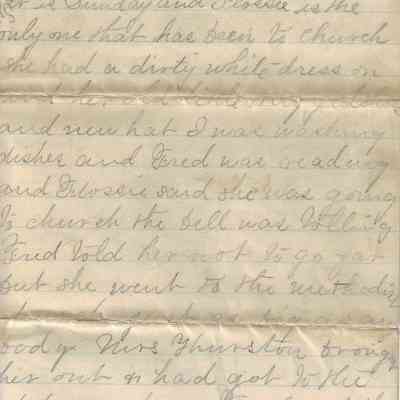 is Sunday and Flossie is the
only one that has been to church
she had a dirty white dress on
and her old
and new hat I was washing
dishes and Fred was reading
and Flossie said she was going
to church the bell was tolling
Fred told her not to go yet
but she went to the methodist
body Mrs Thurston brough
her out & had got to the